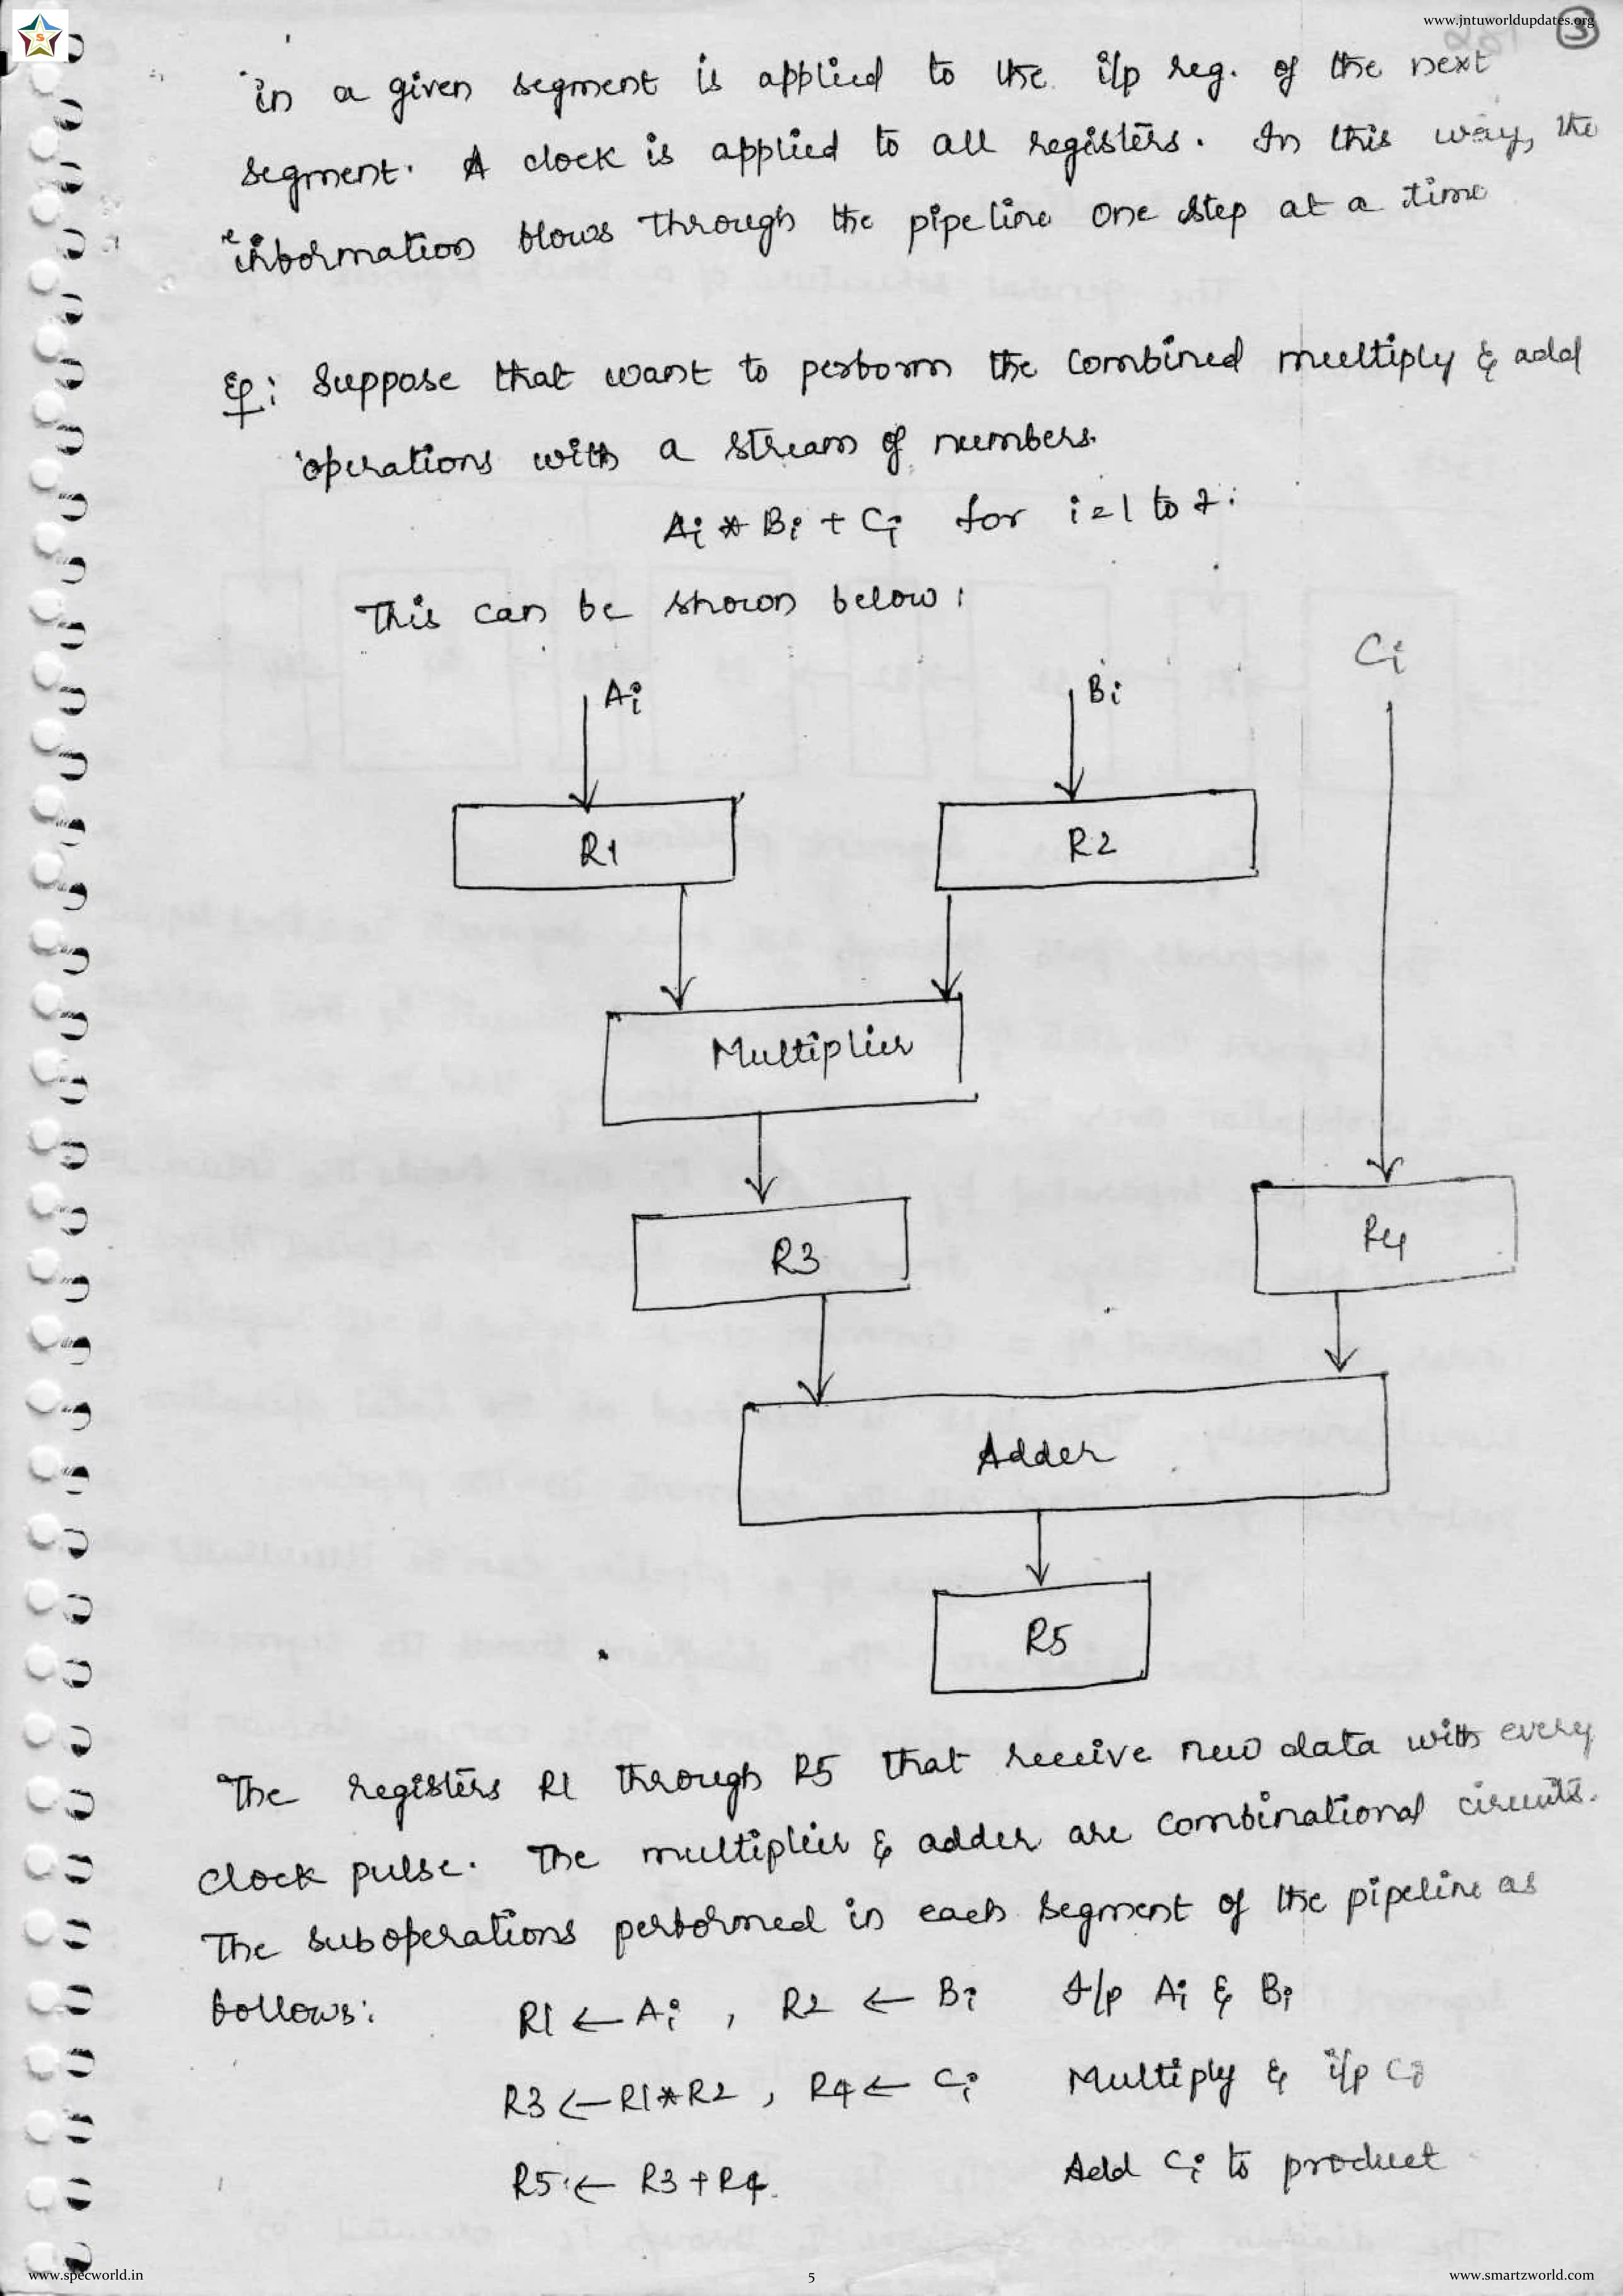 www.jntuworldupdates.org
S
3
in a given segment is applied to the i/p reg. of the next
segment. A clock is applied to all registers. In this way, the
information flows through the pipeline one step at a time
Eg: Suppose that want to perform the combined multiply & add
operations with a stream of numbers.
Ai * Bi + Ci for i=1 to 7.
This can be shown below:
Ci
Ai Bi
R1 R2
Multiplier
R3 R4
Adder
R5
The registers R1 through R5 that receive new data with every
clock pulse. The multiplier & adder are combinational circuits.
The suboperations performed in each segment of the pipeline as
follows: R1 ← Ai , R2 ← Bi I/p Ai & Bi
R3 ← R1*R2 , R4 ← Ci Multiply & i/p Ci
R5 ← R3 + R4. Add Ci to product
www.specworld.in 5 www.smartzworld.com